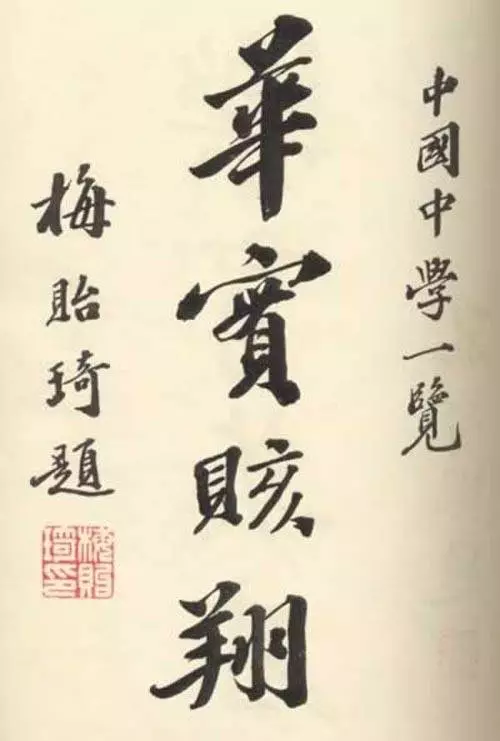 中國中學一覽
華實賅翔
梅貽琦題
梅貽琦印